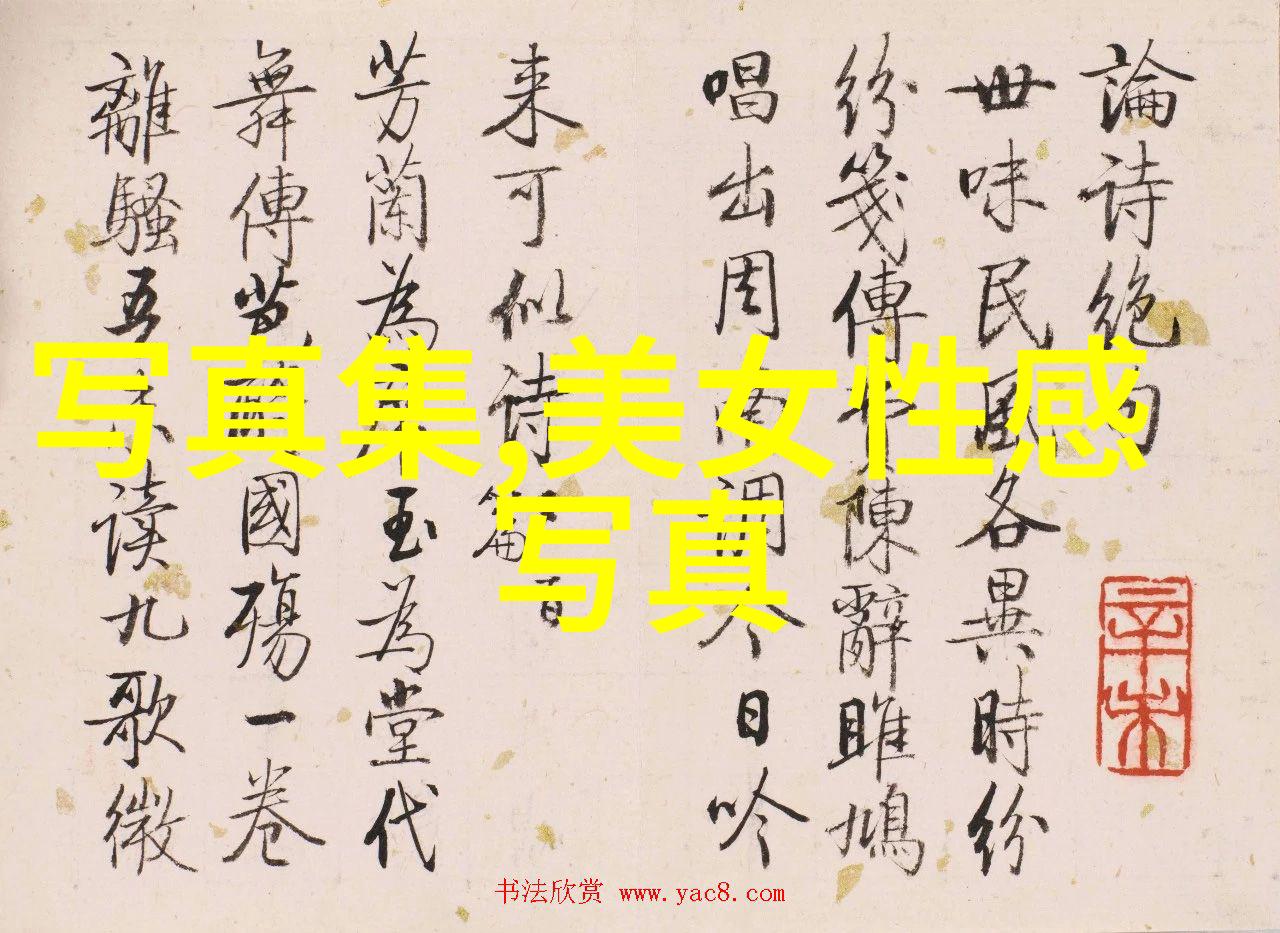 論诗絶句
世味民風各異時紛
紛箋傳陳辭雎鳩
唱出周南調今日吟
来可似诗篇百
芳蘭為席玉為堂代
舞傳芭酹國殤一卷
離騷吾未读九歌微
辛未
写真集,美女性感
写真
书法欣赏 www.yac8.com